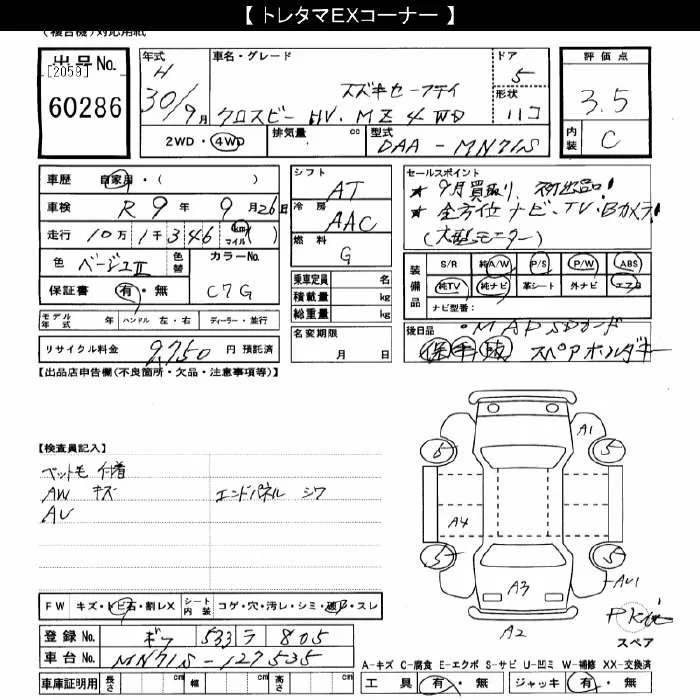 【 トレタマEXコーナー 】
(複合機)対応用紙
出品No.
[2059]
60286
年式 H 30/9月
車名・グレード スズキセーフティ
クロスビー HV. MZ 4WD
ドア 5
形状 ハコ
2WD・4WD
排気量 cc
型式 DAA-MN71S
評価点 3.5
内装 C
車歴 自家用・( )
車検 R 9年 9月26日
走行 10万 1千 346 km マイル ( )
色 ベージュII 色替
カラーNo. C7G
保証書 有・無
シフト AT
冷房 AAC
燃料 G
乗車定員 名
積載量 kg
総重量 kg
セールスポイント
★ 9月買取り、初出品!
★ 全方位ナビ・TV・Bカメラ!
(大型モニター)
装備品 S/R 純A/W P/S P/W ABS
純TV 純ナビ 革シート 外ナビ エアB
ナビ型番:
モデル年式 年 ハンドル 左・右 ディーラー・並行
リサイクル料金 9,750 円 預託済
名変期限 月 日
後日品 ・MAP SDカード
保 手 取 スペアホルダキー
【出品店申告欄(不良箇所・欠品・注意事項等)】
【検査員記入】
ペット毛 付着
AW キズ エンドパネル シワ
AU
FW キズ・トビ石・割レX
シート内装 コゲ・穴・汚レ・シミ・スレ
登録No. 533 ラ 805
車台No. MN71S-127535
車庫証明用 長さ cm 幅 cm 高さ cm
A1
5
5
A4
5
5
A3
AU1
A2
スペア
A-キズ C-腐食 E-エクボ S-サビ U-凹ミ W-補修 XX-交換済
工具 有・無 ジャッキ 有・無